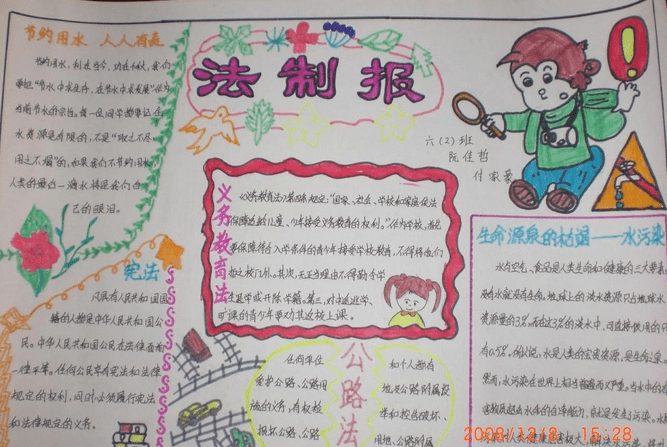 节约用水 人人有责
节约用水，利在当今，功在千秋，我们
要把“节水中求生存，在节水中求发展”作为
当前节水的宗旨。每一位同学都要记住
水资源是有限的，不是“取之不尽
用之不竭”的，如果我们不节约用水，
人类的最后一滴水将是我们自
己的眼泪。
法制报
六(2)班
阮佳哲
付家豪
义务教育法
《义务教育法》第四条规定：“国家、社会、学校和家庭依法
保障适龄儿童、少年接受义务教育的权利。”作为学校，首先
要保障符合入学条件的青少年接受学校教育，不得将他们
拒之校门外。其次，无正当理由不得勒令学
生退学或开除学籍。第三，对中途退学、
旷课的青少年要劝其返校上课。
宪法
凡具有人民共和国国
籍的人都是中华人民共和国公
民。中华人民共和国公民在法律面前
一律平等。任何公民享有宪法和法律
规定的权利，同时必须履行宪法
和法律规定的义务。
公路法
任何单位
爱护公路、公路用
施的义务，有权检
损坏公路、公路
和个人都有
地及公路附属设
举和控告破坏、
用地、公路附属
生命源泉的枯竭——水污染
水与空气、食品是人类生命和健康的三大要素
没有水就没有生命。地球上的淡水资源只占地球水
资源量的3%，而在这3%的淡水中，可直接饮用的只
有0.5%。所以说，水是人类的宝贵资源，是生命之泉。
然而，水污染在世界上相当普遍而又严重。当水中的
害物质超出水体的自净能力，
2008/12/8 15:28